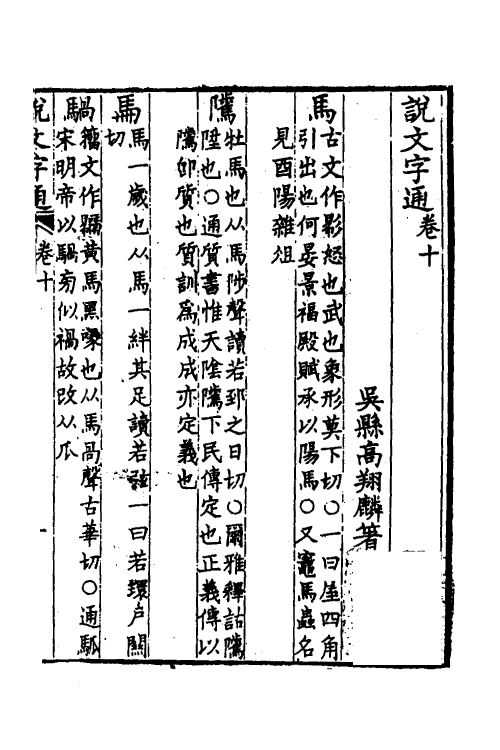 說文字通卷十
吳縣高翔麟著
馬古文作影怒也武也象形莫下切○一曰屋四角
引出也何晏景福殿賦承以陽馬○又竈馬蟲名
見酉陽雜俎
隲牡馬也从馬陟聲讀若郅之日切○爾雅釋詁隲
陞也○通質書惟天陰隲下民傳定也正義傳以
隲卽質也質訓爲成成亦定義也
馬一歲也从馬一絆其足讀若弦一曰若環户關
切
騧籀文作 黃馬黑喙也从馬咼聲古華切○通䯄
宋明帝以騧旁似禍故改从瓜
說文字通 卷十